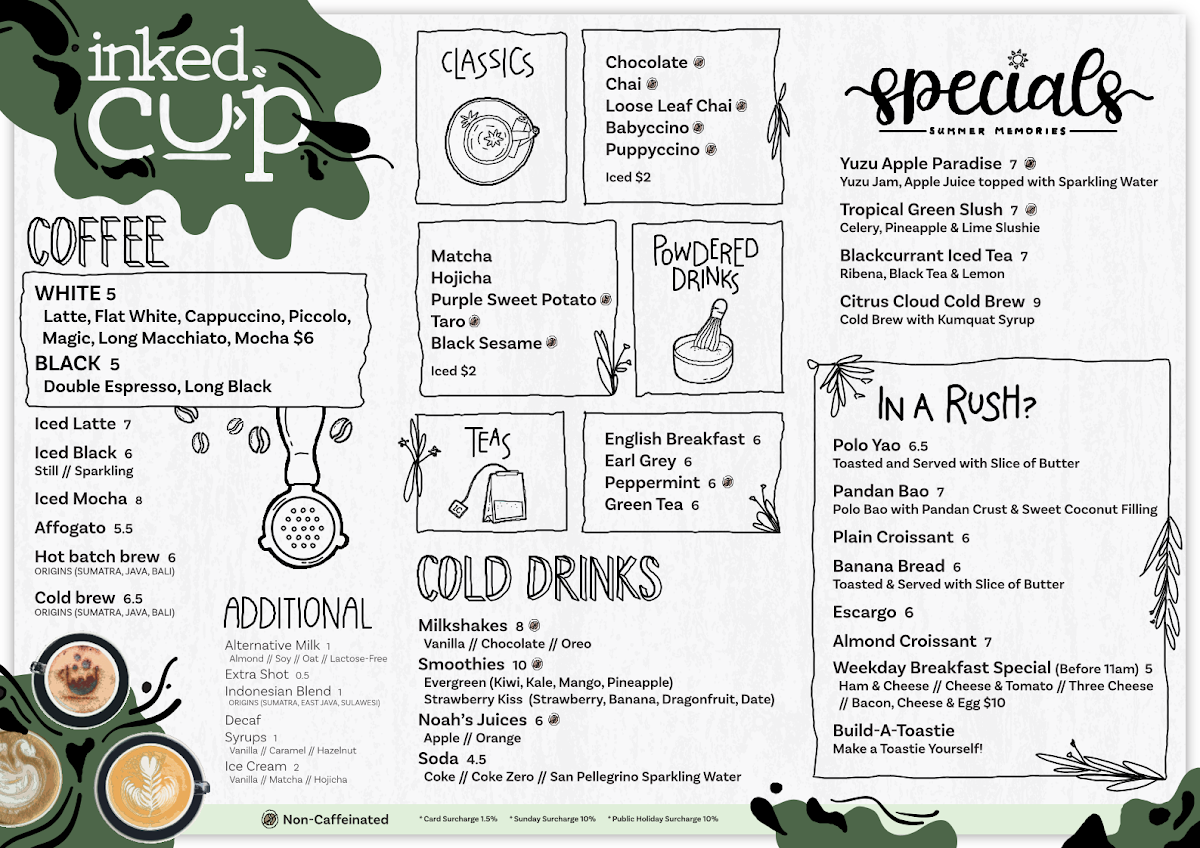 inked.
cup
COFFEE
WHITE 5
Latte, Flat White, Cappuccino, Piccolo,
Magic, Long Macchiato, Mocha $6
BLACK 5
Double Espresso, Long Black
Iced Latte 7
Iced Black 6
Still // Sparkling
Iced Mocha 8
Affogato 5.5
Hot batch brew 6
ORIGINS (SUMATRA, JAVA, BALI)
Cold brew 6.5
ORIGINS (SUMATRA, JAVA, BALI)
ADDITIONAL
Alternative Milk 1
Almond // Soy // Oat // Lactose-Free
Extra Shot 0.5
Indonesian Blend 1
ORIGINS (SUMATRA, EAST JAVA, SULAWESI)
Decaf
Syrups 1
Vanilla // Caramel // Hazelnut
Ice Cream 2
Vanilla // Matcha // Hojicha
CLASSICS
Chocolate
Chai
Loose Leaf Chai
Babyccino
Puppyccino
Iced $2
Matcha
Hojicha
Purple Sweet Potato
Taro
Black Sesame
Iced $2
POWDERED
DRINKS
TEAS
English Breakfast 6
Earl Grey 6
Peppermint 6
Green Tea 6
COLD DRINKS
Milkshakes 8
Vanilla // Chocolate // Oreo
Smoothies 10
Evergreen (Kiwi, Kale, Mango, Pineapple)
Strawberry Kiss (Strawberry, Banana, Dragonfruit, Date)
Noah's Juices 6
Apple // Orange
Soda 4.5
Coke // Coke Zero // San Pellegrino Sparkling Water
specials
SUMMER MEMORIES
Yuzu Apple Paradise 7
Yuzu Jam, Apple Juice topped with Sparkling Water
Tropical Green Slush 7
Celery, Pineapple & Lime Slushie
Blackcurrant Iced Tea 7
Ribena, Black Tea & Lemon
Citrus Cloud Cold Brew 9
Cold Brew with Kumquat Syrup
IN A RUSH?
Polo Yao 6.5
Toasted and Served with Slice of Butter
Pandan Bao 7
Polo Bao with Pandan Crust & Sweet Coconut Filling
Plain Croissant 6
Banana Bread 6
Toasted & Served with Slice of Butter
Escargo 6
Almond Croissant 7
Weekday Breakfast Special (Before 11am) 5
Ham & Cheese // Cheese & Tomato // Three Cheese
// Bacon, Cheese & Egg $10
Build-A-Toastie
Make a Toastie Yourself!
Non-Caffeinated
* Card Surcharge 1.5% * Sunday Surcharge 10% * Public Holiday Surcharge 10%